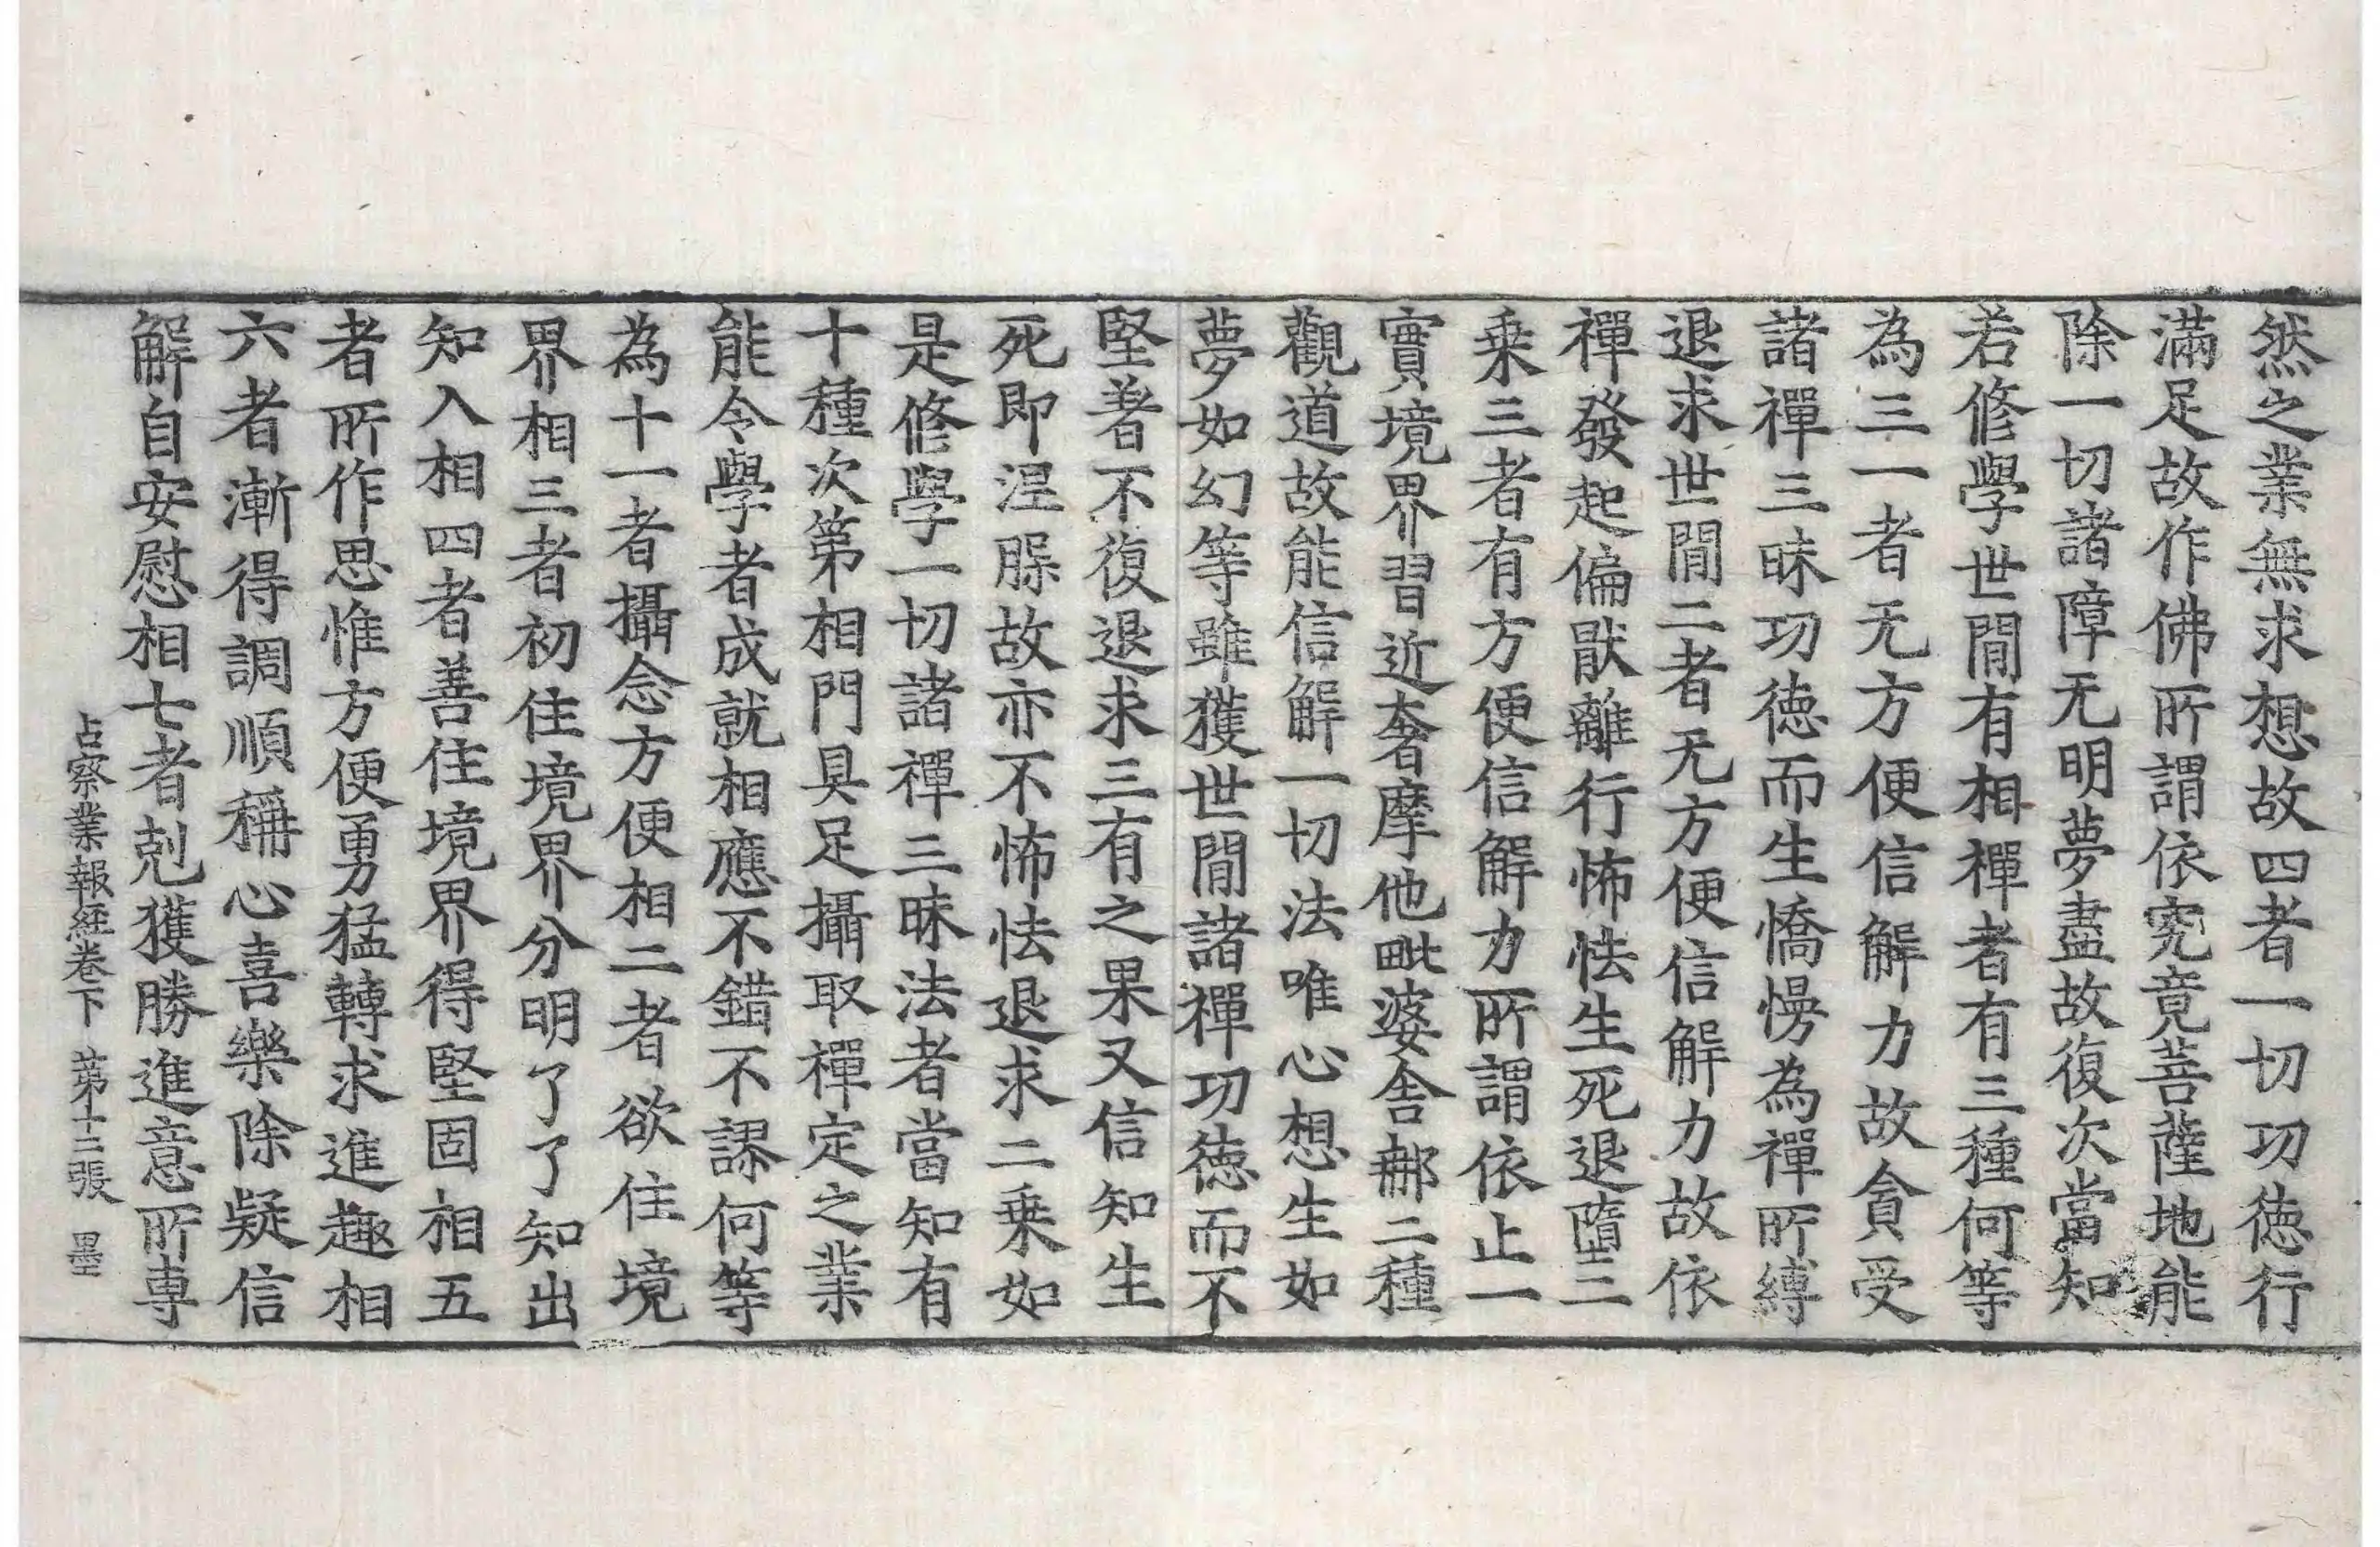 然之業無求想故四者一切功徳行
滿足故作佛所謂依究竟菩薩地能
除一切諸障无明夢盡故復次當知
若修學世閒有相禪者有三種何等
為三一者无方便信解力故貪受
諸禪三昧功徳而生憍慢為禪所縛
退求世閒二者无方便信解力故依
禪發起偏猒離行怖怯生死退墮二
乗三者有方便信解力所謂依止一
實境界習近奢摩他毗婆舍那二種
觀道故能信解一切法唯心想生如
夢如幻等雖獲世閒諸禪功徳而不
堅著不復退求三有之果又信知生
死即涅槃故亦不怖怯退求二乗如
是修學一切諸禪三昧法者當知有
十種次第相門具足攝取禪定之業
能令學者成就相應不錯不謬何等
為十一者攝念方便相二者欲住境
界相三者初住境界分明了了知出
知入相四者善住境界得堅固相五
者所作思惟方便勇猛轉求進趣相
六者漸得調順稱心喜樂除疑信
解自安慰相七者剋獲勝進意所専
占察業報經卷下　第十二張　墨